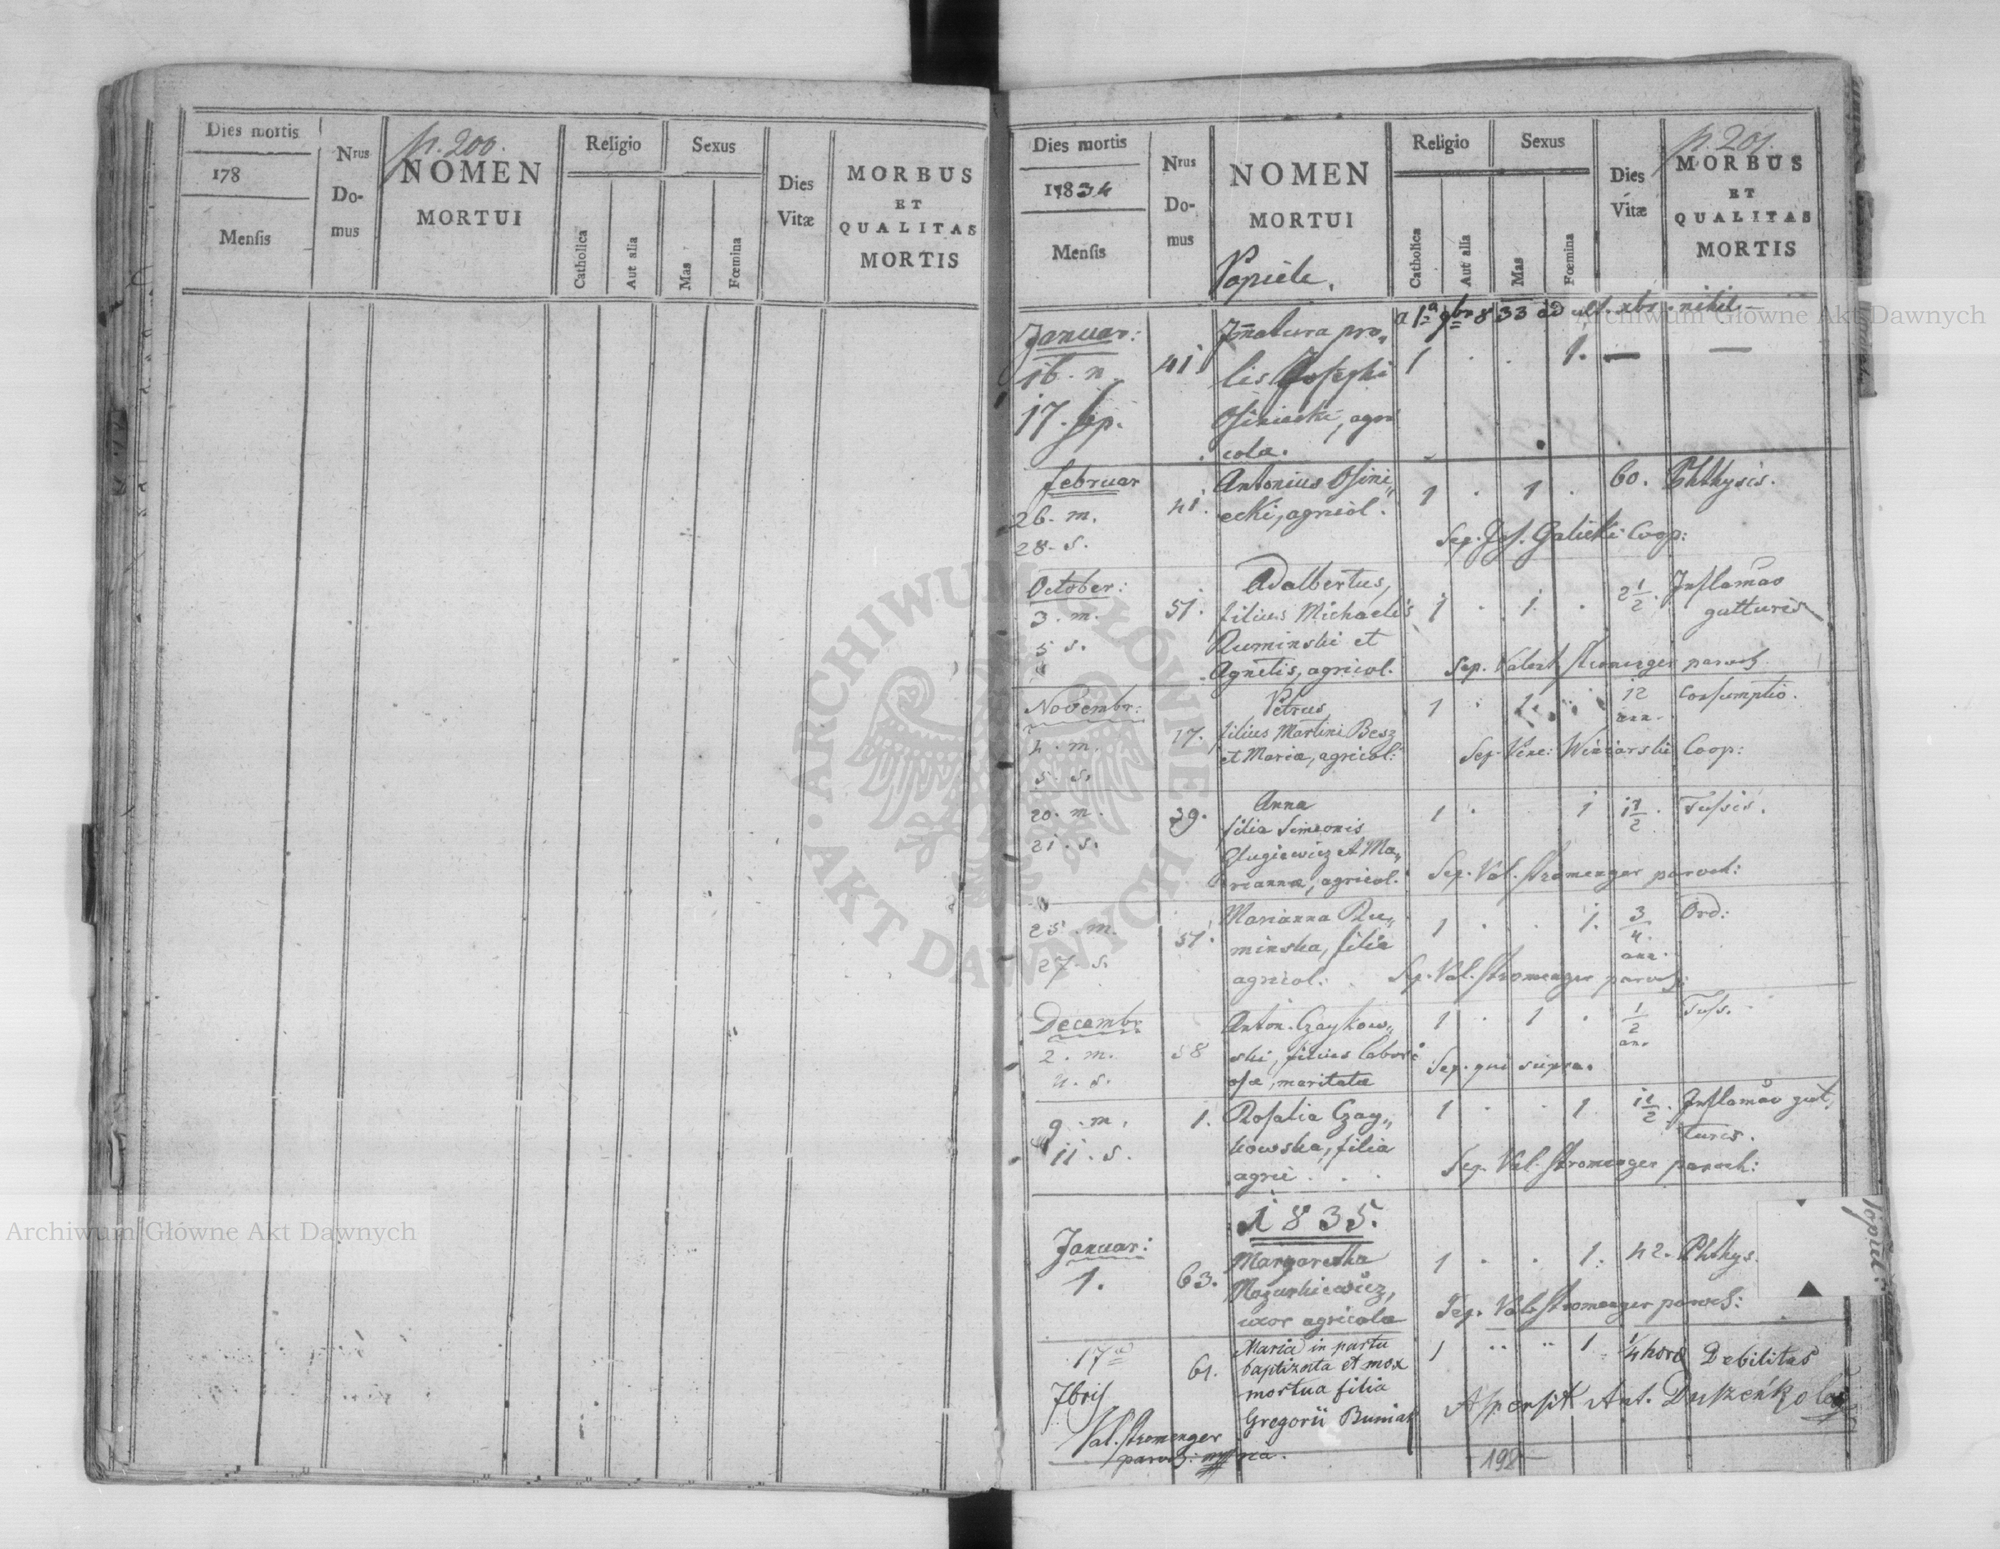 Dies mortis
178
Mensis
Nrus
Do-
mus
p. 200.
NOMEN
MORTUI
Religio
Catholica
Aut alia
Sexus
Mas
Fœmina
Dies
Vitæ
MORBUS
ET
QUALITAS
MORTIS
Dies mortis
1834
Mensis
Nrus
Do-
mus
NOMEN
MORTUI
Popiele.
Religio
Catholica
Aut alia
Sexus
Mas
Fœmina
Dies
Vitæ
p. 201.
MORBUS
ET
QUALITAS
MORTIS
a 1a 9br 833 ad ult. xbr. nihil
Januar:
16. n
17. sep.
41
Immatura pro„
lis Josephi
Osiniecki, agri
colæ.
1 . . 1. — —
Februar
26. m.
28. s.
41.
Antonius Osini„
ecki, agricol.
1 . 1 . 60. Phthysis.
Sep. Jos. Galicki Coop:
October:
3. m.
5 s.
51.
Adalbertus,
filius Michaelis
Ruminski et
Agnetis, agricol.
1 . 1. . 2 1/2. Inflamao
gutturis
Sep. Valent. Stromenger paroch
Novembr:
4. m.
5. s.
17.
Petrus
filius Martini Besz
et Mariæ, agricol:
1 . 1. 12
ann.
Consumptio.
Sep. Vinc: Winiarski Coop:
20. m.
21. s.
39.
Anna
filia Simeonis
Dlugiewicz et Ma„
riannæ, agricol.
1 . . 1 1 1/2. Tussis.
Sep. Val. Stromenger paroch:
25. m.
27. s.
51.
Marianna Ru„
minska, filia
agricol.
1 . . 1. 3/4.
ann.
Ord:
Sep. Val. Stromenger paroch:
Decembr
2. m.
4. s.
58
Anton. Czaykow„
ski, filius labori
osæ, maritatæ
1 . 1 . 1/2
an.
Tuss.
Sep. qui supra.
9. m.
11. s.
1.
Rosalia Czay„
kowska, filia
agric . . .
1 . . 1 1 1/2. Inflamao gut„
turis.
Sep. Val. Stromenger paroch:
1835.
Januar:
1.
63.
Margaretha
Mazurkiewicz,
uxor agricolæ
1 . . 1. 42. Phthys.
Sep. Val. Stromenger paroch:
17a
7bris
61.
Maria in partu
baptizata et mox
mortua filia
Gregorii Buniak
1 .. .. 1. 1/4 horæ Debilitas
Aspersit Ant. Duszeńko
Val. Stromenger
paroch: mpria.
198
Popiel:
Archiwum Główne Akt Dawnych
Archiwum Główne Akt Dawnych
ARCHIWUM GŁÓWNE AKT DAWNYCH